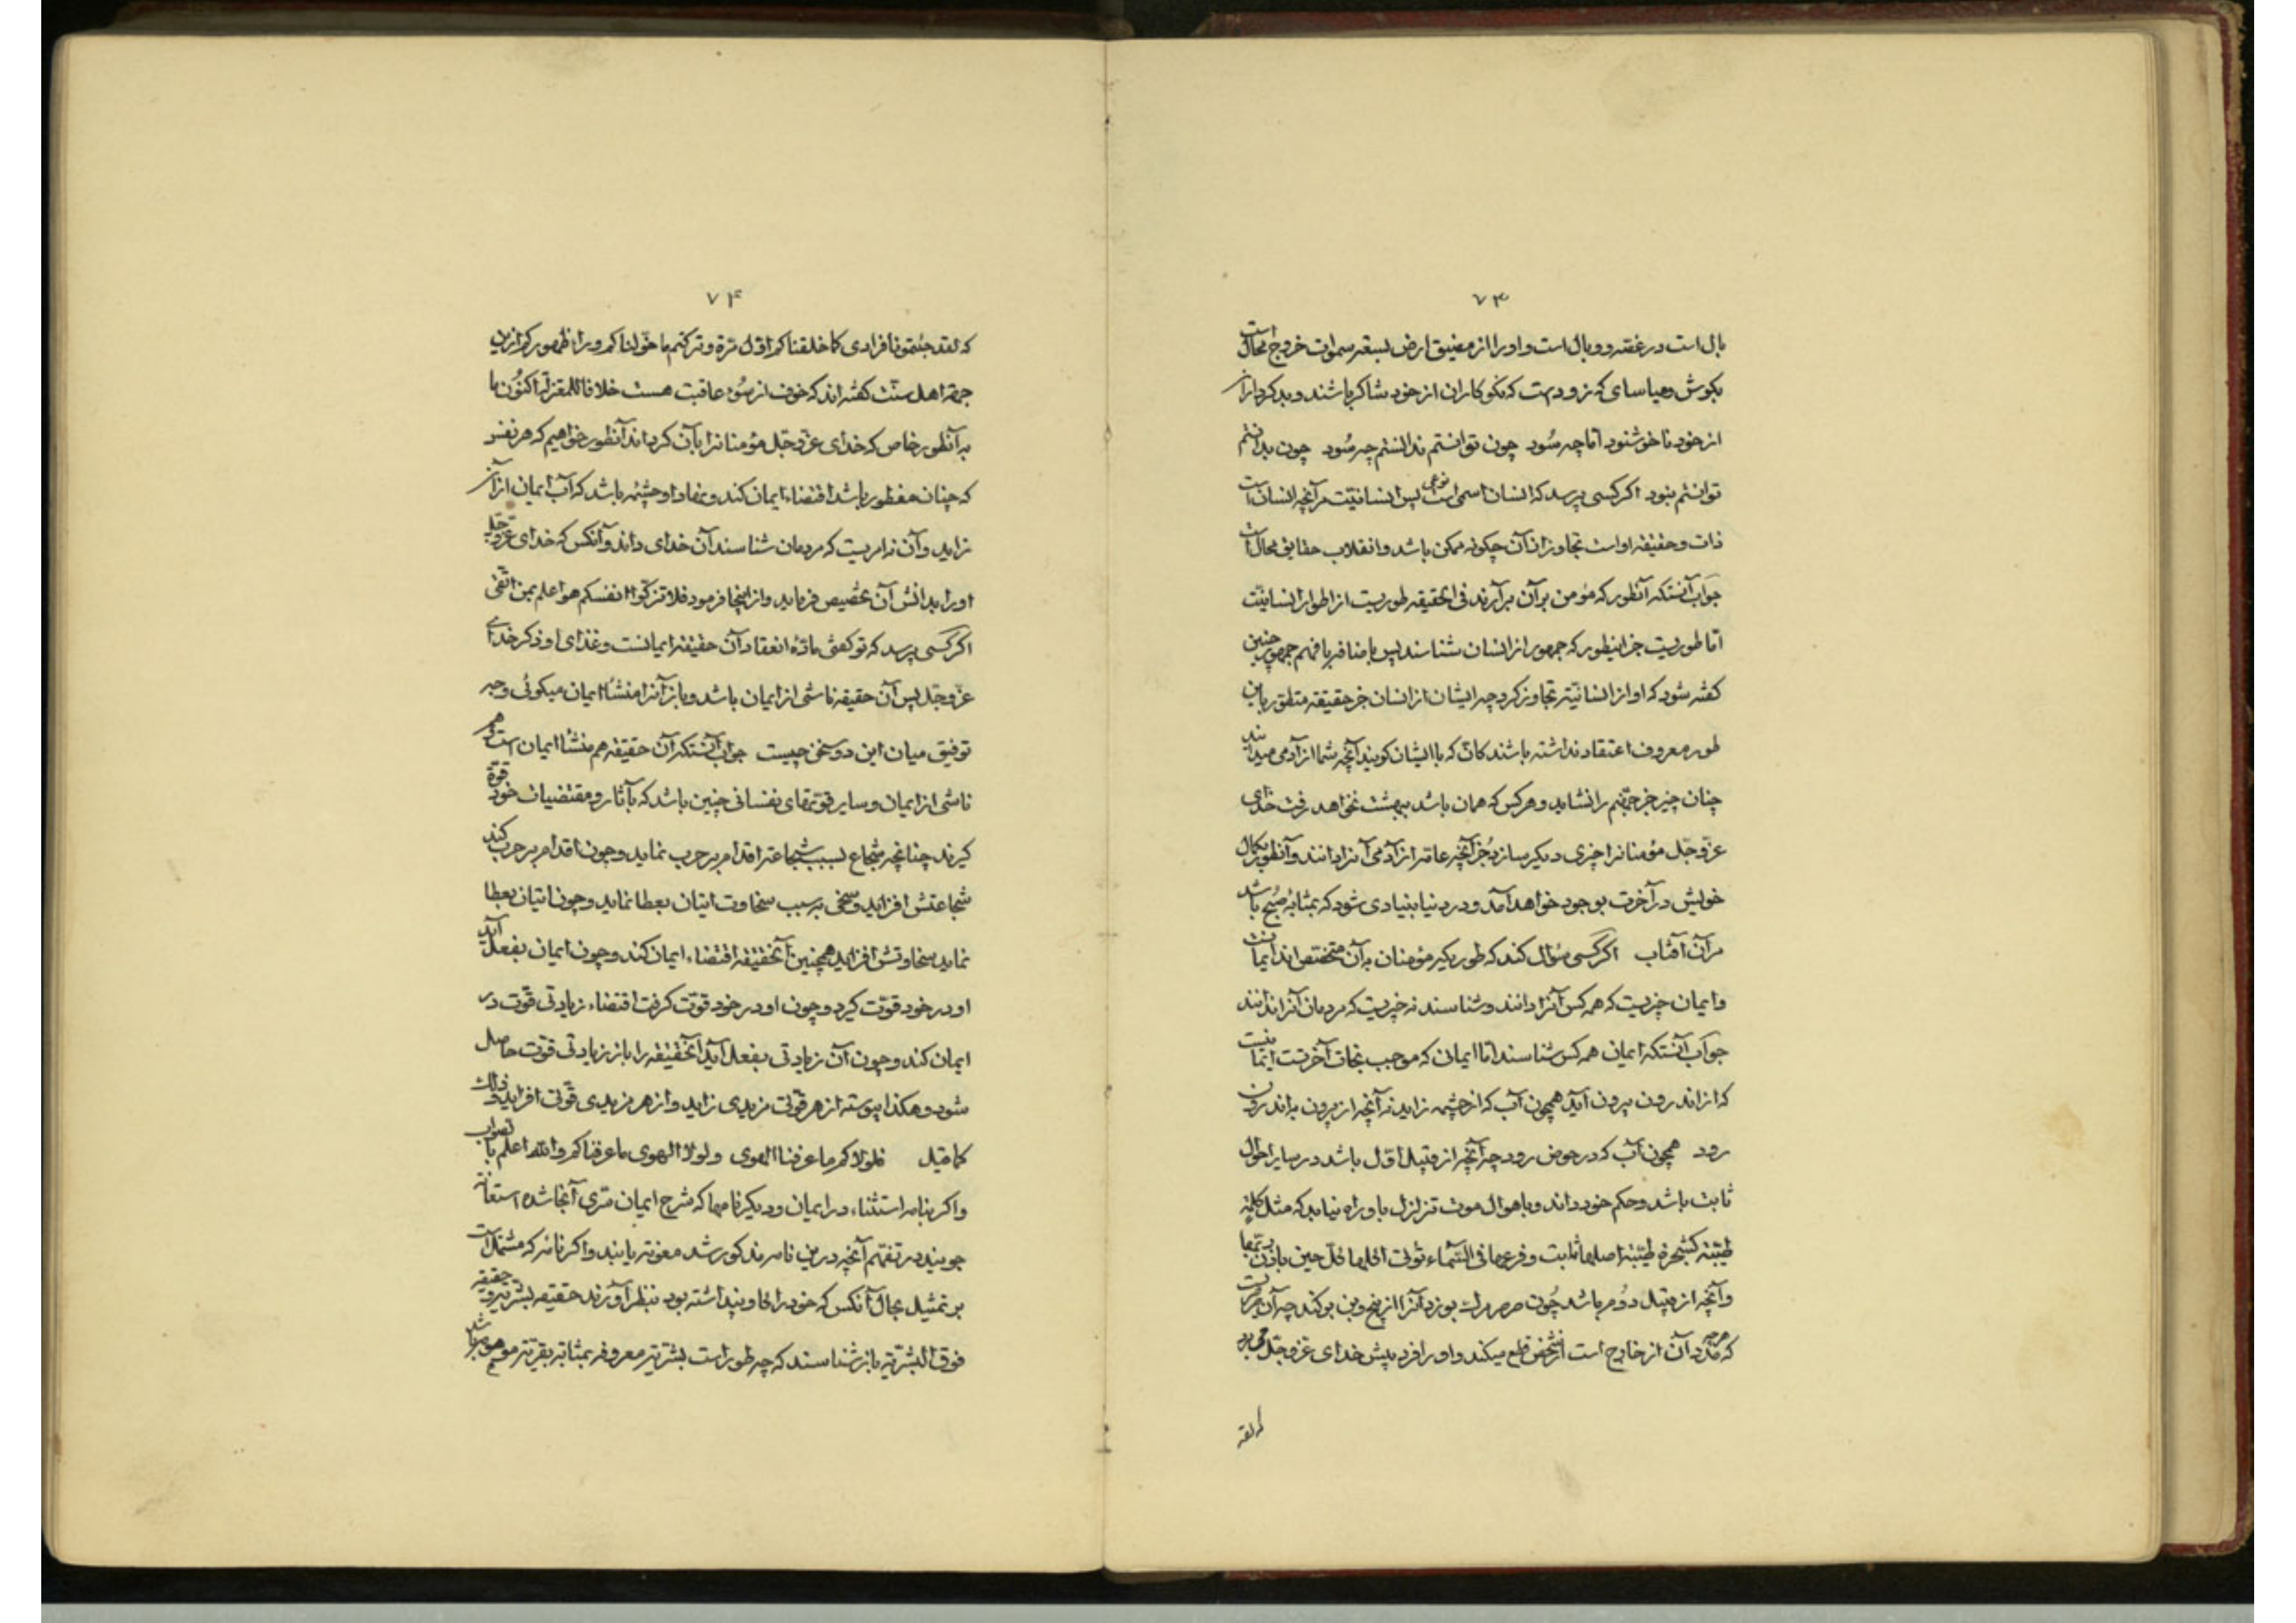 ۷۳
بال است در غصه و وبال است و او را از مضیق ارض بسعه سموات خروج محال است
بکوش و میاسای که زود است که نکوکاران از خود شاکر باشند و بدکرداران
از خود ناخوشنود اما چه سود چون توانستم ندانستم چه سود چون بدانستم
توانستم نبود اکر کسی پرسد که انسان اسمی است نوعی پس انسانیت مر آنچه انسان است
ذات و حقیقه او است تجاوز از آن چکونه ممکن باشد و انقلاب حقایق محال است
جواب آنستکه آنطور که مؤمن بر آن برآرند فی الحقیقه طوریست از اطوار انسانیت
اما طوریست جز اینطور که جمهور از انسان شناسند پس باضافه با فهم جمهور چنین
کفته شود که او از انسانیته تجاوز کرد چه ایشان از انسان جز حقیقه متطور باین
طور معروف اعتقاد نداشته باشند کان که با ایشان کویند آنچه شما از آدمی میدانید
چنان چیز جز جهنم را نشاید و هر کس که همان باشد ببهشت نخواهد رفت خدای
عز و جل مؤمنانرا چیزی دیکر سازد جز آنچه عامه از آدمی آنرا دانند و آنطور بکمال
خویش در آخرت بوجود خواهد آمد و در دنیا بنیادی شود که بمثابه صبح باشد
مر آن آفتاب اکر کسی سؤال کند که طور دیکر مؤمنان به آن مختص اند ایمانست
و ایمان چیزیست که همه کس آنرا دانند و شناسند نه چیزیست که مردمان آنرا ندانند
جواب آنستکه ایمان همه کس شناسند اما ایمان که موجب نجات آخرتست ایمانیست
که از اندرون بیرون آید همچون آب که از چشمه زاید نه آنچه از بیرون به اندرون
رود همچون آب که در حوض رود چه آنچه از قبیل اول باشد در سایر احوال
ثابت باشد و حکم خود داند و باهوال موت تزلزل باو راه نیابد که مثل کلمة
طیبة کشجرة طیبة اصلها ثابت و فرعها فی السماء تؤتی اکلها کل حین باذن ربها
و آنچه از قبیل دوم باشد چون صرصر مرک بوزد آنرا از بیخ و بن برکند چه آن
که مدد آن از خارج است از شخص قطع میکند و او را فرد پیش خدای عز و جل می‌برد
که لقد
۷۴
که لقد جئتمونا فرادی کما خلقناکم اول مرة و ترکتم ما خولناکم وراء ظهورکم ازین
جهة اهل سنت کفته اند که خوف از سوء عاقبت هست خلافا للمعتزلة اکنون با
به آنطور خاص که خدای عز و جل مؤمنانرا بآن کرداند آنطور خواهیم که هر نفس
که چنان مفطور باشد اقتضاء ایمان کند و نهاد او چشمه باشد که آب ایمان از آن
زاید و آن نه امریست که مردمان شناسند آن خدای داند و آنکس که خدای عز و جل
او را بدانش آن تخصیص فرماید و از اینجا فرمود فلا تزکوا انفسکم هو اعلم بمن اتقی
اکر کسی پرسد که تو کفتی ماده انعقاد آن حقیقه ایمانست و غذای او ذکر خدای
عز و جل پس آن حقیقه ناشی از ایمان باشد و باز آنرا منشأ ایمان میکوئی وجه
توفیق میان این دو سخن چیست جواب آنستکه آن حقیقه هم منشأ ایمان است و هم
ناشی از ایمان و سایر قوتهای نفسانی چنین باشد که بآثار و مقتضیات خود قوة
کیرند چنانچه شجاع بسبب شجاعته اقدام بر حرب نماید و چون اقدام بر حرب کند
شجاعتش افزاید و سخی بر سبب سخاوت اتیان بعطا نماید و چون اتیان بعطا
نماید سخاوتش افزاید همچنین آنحقیقه اقتضاء ایمان کند و چون ایمان بفعل آید
او در خود قوت کیرد و چون او در خود قوت کرفت اقتضاء زیادتی قوت در
ایمان کند و چون آن زیادتی بفعل آید آنحقیقه را باز زیادتی قوت حاصل
شود و هکذا پیوسته از هر قوتی مزیدی زاید و از هر مزیدی قوتی افزاید و ذلک
کما قیل فلولاکم ما عرفنا الهوی ولولا الهوی ما عرفناکم والله اعلم بالصواب
و اکر بنامه استثناء در ایمان و دیکر نامها که شرح ایمان متری آنجا شده استعانة
جویند در تفهم آنچه درین نامه مذکور شد معونة یابند و اکر نامه که مشتمل است
بر تمثیل بحال آنکس که خود را کاو پنداشته بود بنظر آورند حقیقه بشریه و حقیقه
فوق البشریه باز شناسند که چه طور است بشریته معروفه بمثابه بقریته موهومه باشد